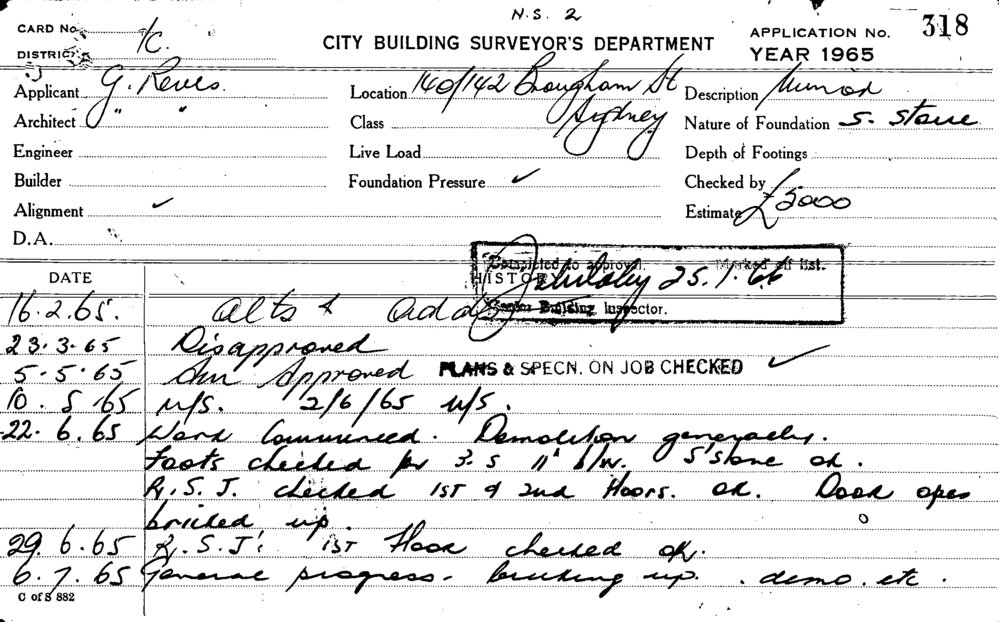 N.S. 2
CARD No. 1C.
DISTRICT
CITY BUILDING SURVEYOR'S DEPARTMENT
APPLICATION No. 318
YEAR 1965
Applicant G. Reves. Location 140/142 Brougham St Sydney Description
Architect " " Class Nature of Foundation S. Stone
Engineer Live Load Depth of Footings
Builder Foundation Pressure ✓ Checked by
Alignment ✓ Estimate £5000
D.A.
Completed to approval. Marked off list.
DATE HISTORY 25.1.66
Senior Building Inspector.
16.2.65. Alts & Adds
23.3.65 Disapproved
5.5.65 Am Approved PLANS & SPECN. ON JOB CHECKED ✓
10.5.65 N/S. 2/6/65 N/S.
22.6.65 Work Commenced. Demolition generally.
Foots checked for 3.S 11" b/w. S'stone ok.
R.S.J. checked 1st & 2nd Floors. ok. Door opes
bricked up.
29.6.65 R.S.J's 1st Floor checked ok.
6.7.65 General progress - bricking up. demo. etc.
C of S 882